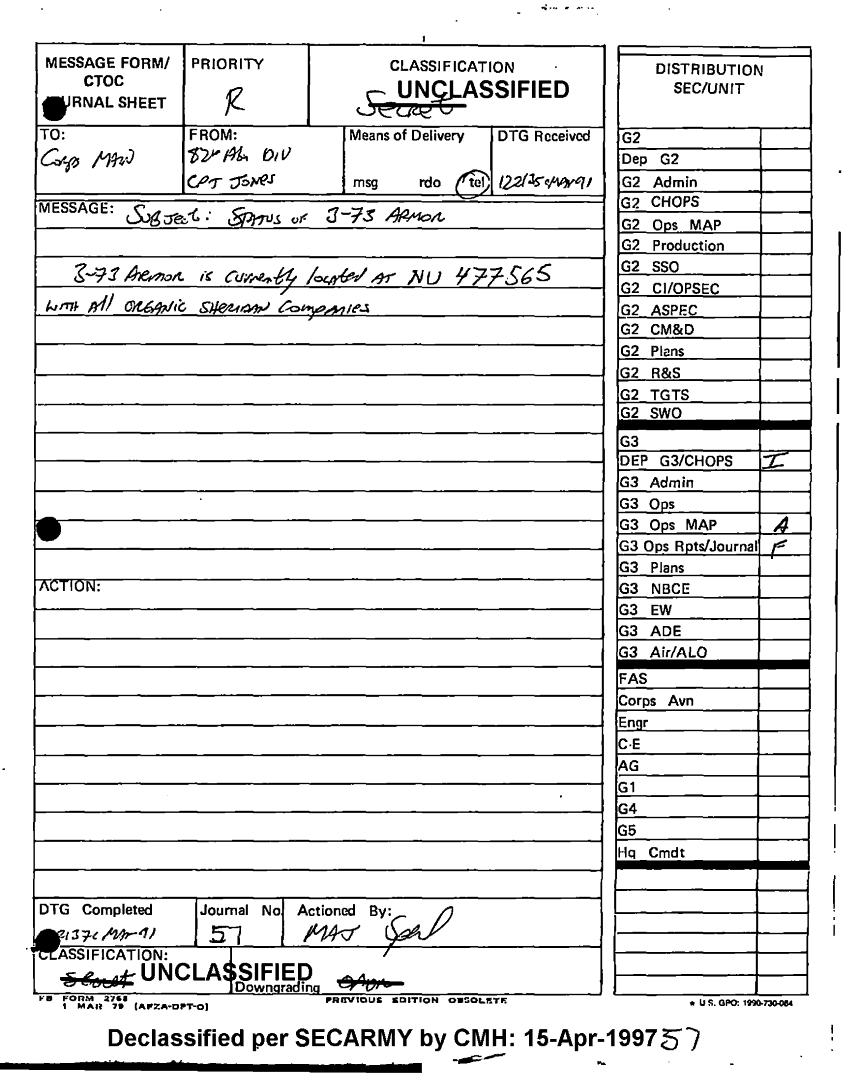 MESSAGE FORM/ CTOC JOURNAL SHEET
PRIORITY
R
CLASSIFICATION
UNCLASSIFIED
Secret
DISTRIBUTION SEC/UNIT
TO:
Corps MAIN
FROM:
82nd Abn DIV
CPT JONES
Means of Delivery
msg rdo tel
DTG Received
122135cMar91
MESSAGE: Subject: STATUS OF 3-73 ARMOR
3-73 Armor is currently located AT NU 477565
WITH All ORGANIC SHERIDAN Companies
G2
Dep G2
G2 Admin
G2 CHOPS
G2 Ops MAP
G2 Production
G2 SSO
G2 CI/OPSEC
G2 ASPEC
G2 CM&D
G2 Plans
G2 R&S
G2 TGTS
G2 SWO
G3
DEP G3/CHOPS I
G3 Admin
G3 Ops
G3 Ops MAP A
G3 Ops Rpts/Journal F
G3 Plans
G3 NBCE
G3 EW
G3 ADE
G3 Air/ALO
FAS
Corps Avn
Engr
C-E
AG
G1
G4
G5
Hq Cmdt
ACTION:
DTG Completed
2137c Mar 91
Journal No
57
Actioned By:
MAJ
CLASSIFICATION:
Secret UNCLASSIFIED
Downgrading
FB FORM 2768
1 MAR 79 (AFZA-DPT-O)
PREVIOUS EDITION OBSOLETE
★ U.S. GPO: 1990-730-084
Declassified per SECARMY by CMH: 15-Apr-1997 57